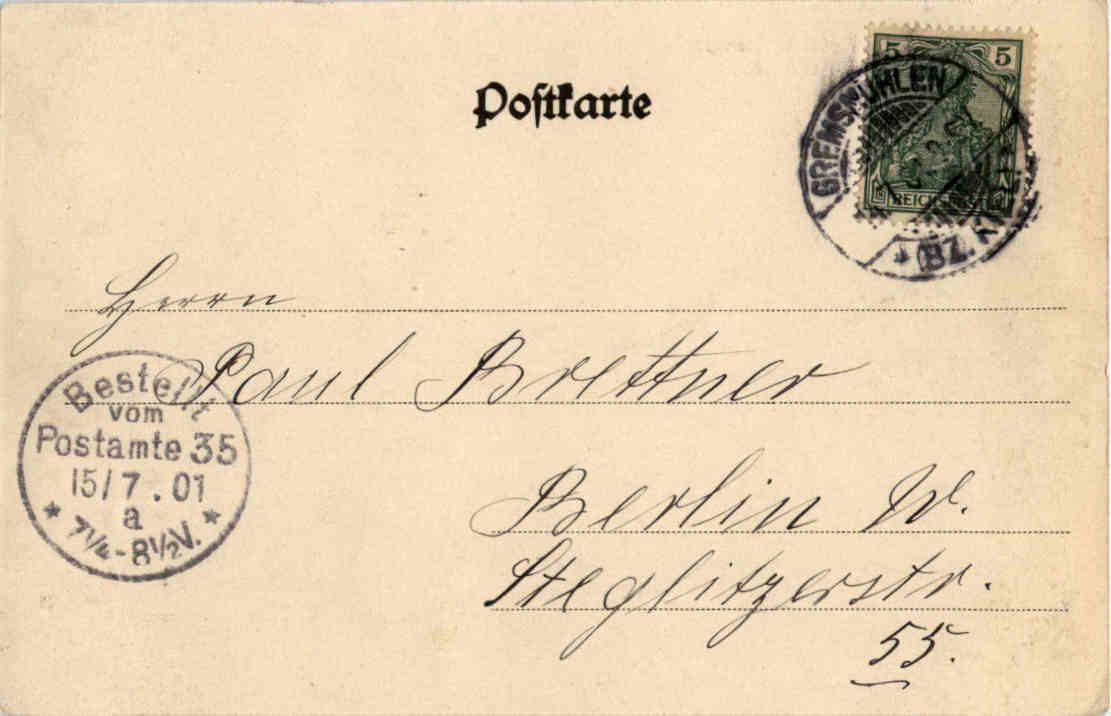 Postkarte
5 5
REICHSPOST
GREMSMÜHLEN
(BZ. KIEL)
Herrn
Paul Brettner
Berlin W.
Steglitzerstr.
55.
Bestellt
vom
Postamte 35
15/7.01
a
7¼-8½V.